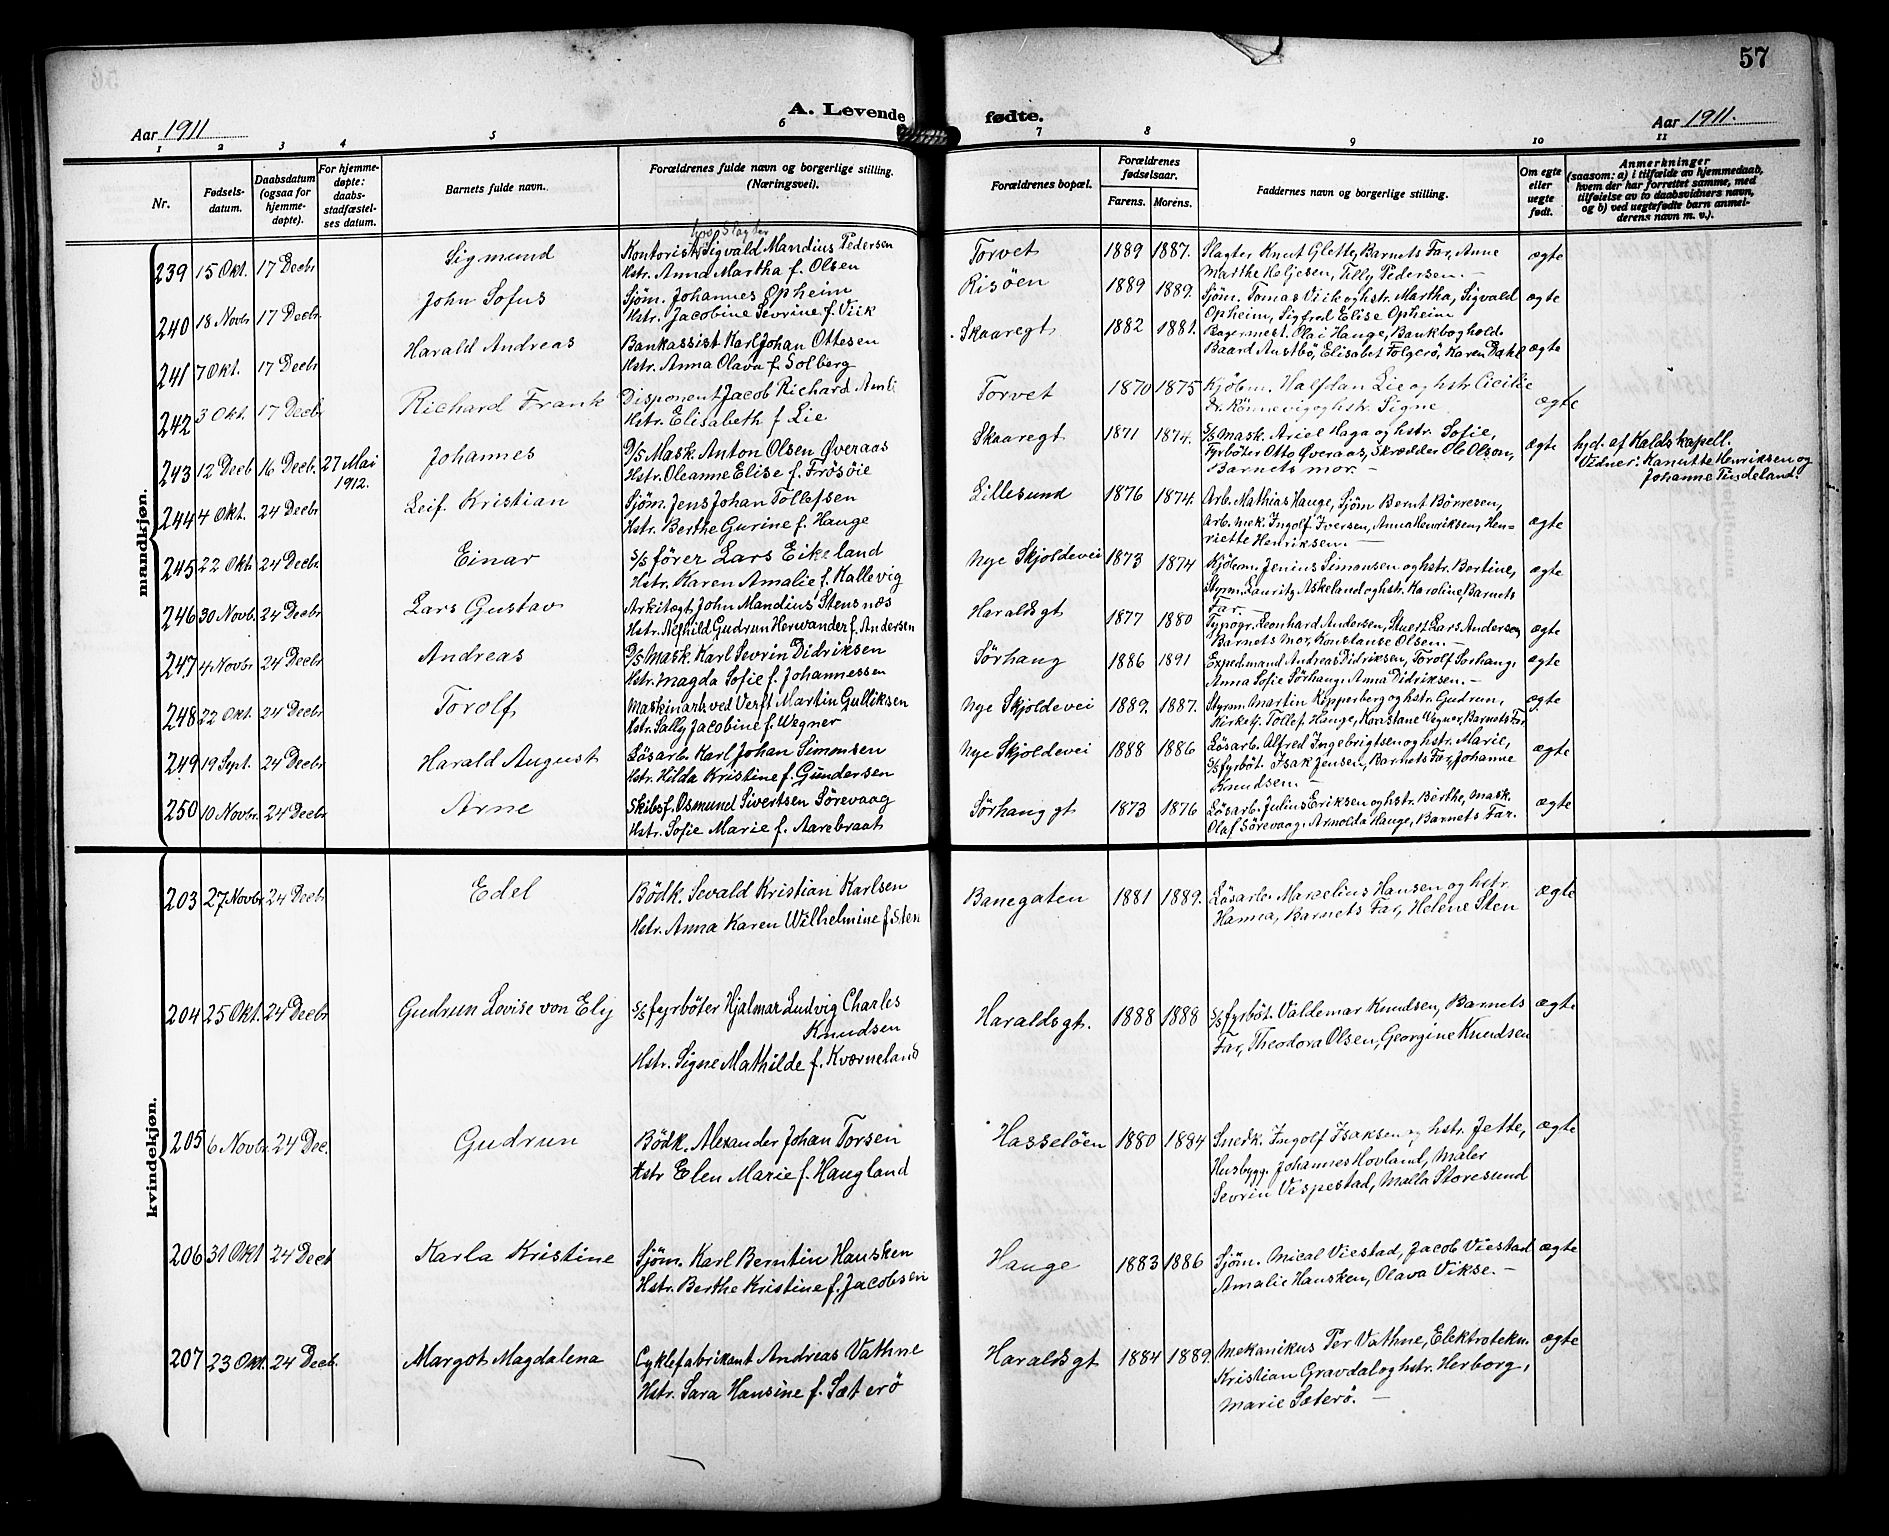 57
A. Levende fødte.
Aar 1911
Aar 1911.
1 2 3 4 5 6 7 8 9 10 11
Nr.
Fødsels-
datum.
Daabsdatum
(ogsaa for
hjemme-
døpte).
For hjemme-
døpte:
daabs-
stadfæstel-
ses datum.
Barnets fulde navn.
Forældrenes fulde navn og borgerlige stilling.
(Næringsvei).
Forældrenes bopæl.
Forældrenes
fødselsaar.
Farens. Morens.
Faddernes navn og borgerlige stilling.
Om egte
eller
uegte
født.
Anmerkninger
(saasom: a) i tilfælde av hjemmedaab,
hvem der har forrettet samme, med
tilføielse av to daabsvidners navn,
og b) ved uegtefødte barn anmel-
derens navn m. v.).
mandkjøn.
239 15 Okt. 17 Decbr Sigmund Kontorist Sigvald Mandius Pedersen Torvet 1889 1887. Slagter Knut Glette, Barnets Far, Anne ægte
Hstr. Anna Martha f. Olsen Marthe Heljesen, Tilly Pedersen. —
240 18 Novbr 17 Decbr John Sofus Sjøm. Johannes Opheim Risöen 1889 1889. Sjøm. Tomas Viik og hstr. Martha, Sigvald ægte
Hstr. Jacobine Sevrine f. Viik Opheim, Sigfred Elise Opheim
241 7 Okt. 17 Decbr Harald Andreas Bankassist Karl Johan Ottesen Skaaregt 1882 1881. Bagermest. Ola i Hauge, Bankboghold. ægte
Hstr. Anna Olava f. Solberg Baard Austbö, Elisabet Folgerö, Karen Dahl
242 3 Okt. 17 Decbr Richard Frank Disponent Jacob Richard Amli Torvet 1870 1875 Kjöbm. Halfdan Lie og hstr Cicilie ægte
Hstr. Elisabeth f Lie Dr. Rönnevig og hstr. Signe
243 12 Decb 16 Decb. 27 Mai 1912. Johannes D/s Mask Anton Olsen Øveraas Skaaregt 1871 1874. S/s Mask. Ariel Haga og hstr. Sofie, ægte hjd. af Kalds kapell.
Hstr. Oleanne Elise f. Frösöie Fyrböter Otto Øveraas, Skrædder Ole Olson, Vidner: Kanutte Henriksen og
Barnets mor. — Johanne Tindeland.
244 4 Okt. 24 Decbr Leif. Kristian Sjöm. Jens Johan Tollefsen Lillesund 1876 1874. Arb. Mathias Hauge, Sjöm Bernt Börresen, ægte
Hstr. Berthe Gurine f. Hauge Arb. mek. Ingolf Iversen, Anna Henriksen, Hen-
riette Henriksen. —
245 22 Okt 24 Decbr Einar S/s förer Lars Eikeland Nye Skjoldevei 1873 1874 Kjöbm. Jenius Simonsen og hstr. Bertine, ægte
Hstr. Karen Amalie f. Kallevig Styrm. Lauritz Askeland og hstr. Karoline, Barnets
Far. —
246 30 Novb. 24 Decbr Lars Gustav Arkitegt John Mandius Stensnæs Haraldsgt 1877 1880 Typogr. Leonhard Andersen, Stuert Lars Andersen ægte
Hstr. Alfhild Gudrun Herwander f. Andersen Barnets mor, Konstanse Olsen —
247 4 Novbr 24 Decbr Andreas D/s Mask. Karl Sevrin Didriksen Sørhaug 1886 1891 Exped. mand Andreas Didriksen, Torolf Sørhaug, ægte
Hstr. Magda Sofie f. Johannessen Anna Sofie Sørhaug, Anna Didriksen. —
248 22 Okt. 24 Decbr Torolf Maskinarb. ved Verft Martin Gulliksen Nye Skjoldevei 1889. 1887. Styrm. Martin Kipperberg og hstr. Gudrun, ægte
Hstr. Sally Jacobine f. Wegner Kirketj. Tollef. Hauge, Konstane Vegner, Barnets Far.
249 19 Sept. 24 Decbr Harald August Lösarb. Karl Johan Simonsen Nye Skjoldevei 1888 1886 Lösarb. Alfred Ingebrigtsen og hstr. Marie, ægte
Hstr. Hilda Kristine f. Gundersen S/s fyrböt. Isak Jensen, Barnets Far, Johanne
Knudsen —
250 10 Novbr. 24 Decbr Arne Skibsf. Osmund Sivertsen Sörevaag Sörhaug gt 1873 1876 Lösarb. Julius Eriksen og hstr. Berthe, Mask. ægte
Hstr. Sofie Marie f. Aarebraat Olaf Sörevaag, Arnolda Hauge, Barnets Far.
kvindekjøn.
203 27 Novbr. 24 Decbr Edel Bödk. Sevald Kristian Karlsen Banegaten 1881 1889. Lösarb. Marselius Hansen og hstr. ægte
Hstr. Anna Karen Wilhelmine f Sten Hanna, Barnets Far, Helene Sten
204 25 Okt. 24 Decbr Gudrun Lovise von Ely S/s fyrböter Hjalmar Ludvig Charles Haraldsgt. 1888 1888 S/s fyrböt. Valdemar Knudsen, Barnets ægte
Knudsen Far, Theodora Olsen, Georgine Knudsen
Hstr. Signe Mathilde f. Kværneland
205 6 Novbr. 24 Dec. Gudrun Bödk. Alexander Johan Torsen Hasselöen 1880 1884 Snedk. Ingolf Isaksen og hstr. Jette, ægte
Hstr Elen Marie f. Haugland Husbygg. Johannes Hovland, Maler
Sevrin Vespestad, Malla Storesund
206 31 Okt 24 Decb Karla Kristine Sjöm. Karl Berntin Hausken Hauge 1883 1886 Sjöm. Mical Viestad, Jacob Viestad ægte
Hstr. Berthe Kristine f. Jacobsen Amalie Hausken, Olava Vikse. —
207 23 Okt. 24 Decb. Margot Magdalena Cyklefabrikant Andreas Vathne Haraldsgt 1884 1889. Mekanikus Per Vathne, Elektrotekn. ægte
Hstr. Sara Hansine f. Sæterö Kristian Gravdal og hstr. Herborg,
Marie Sæterö. —